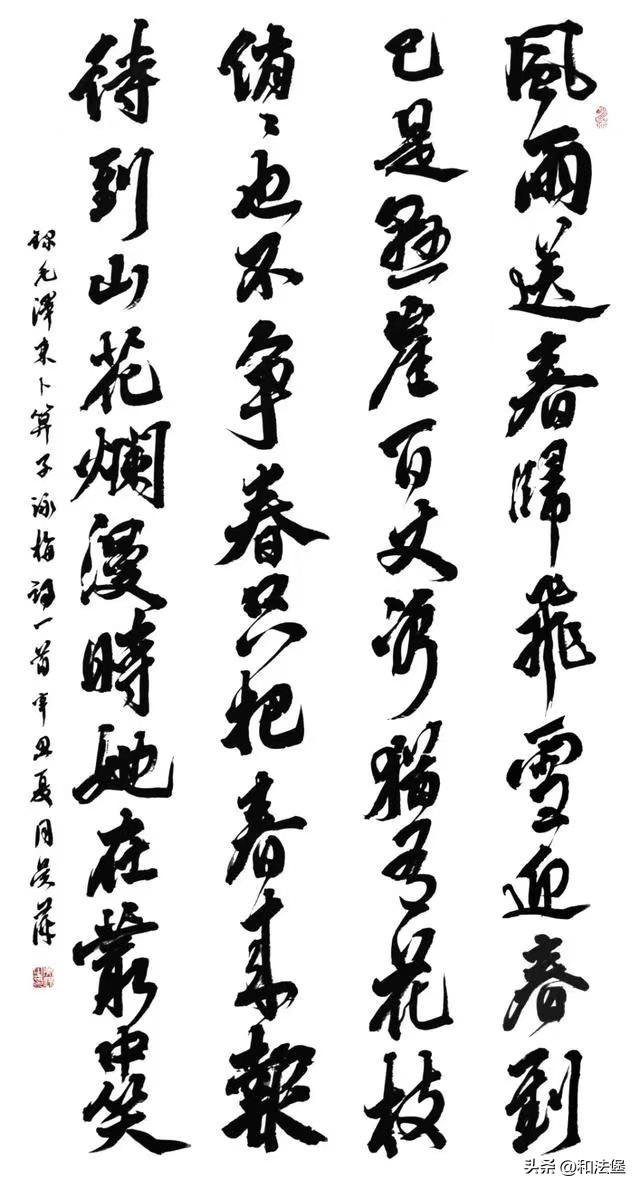 風雨送春歸飛雪迎春到
已是懸崖百丈冰猶有花枝
俏〻也不争春只把春来報
待到山花爛漫時她在叢中笑
録毛澤東卜算子詠梅詞一首辛丑夏月吴
头条 @和法堡